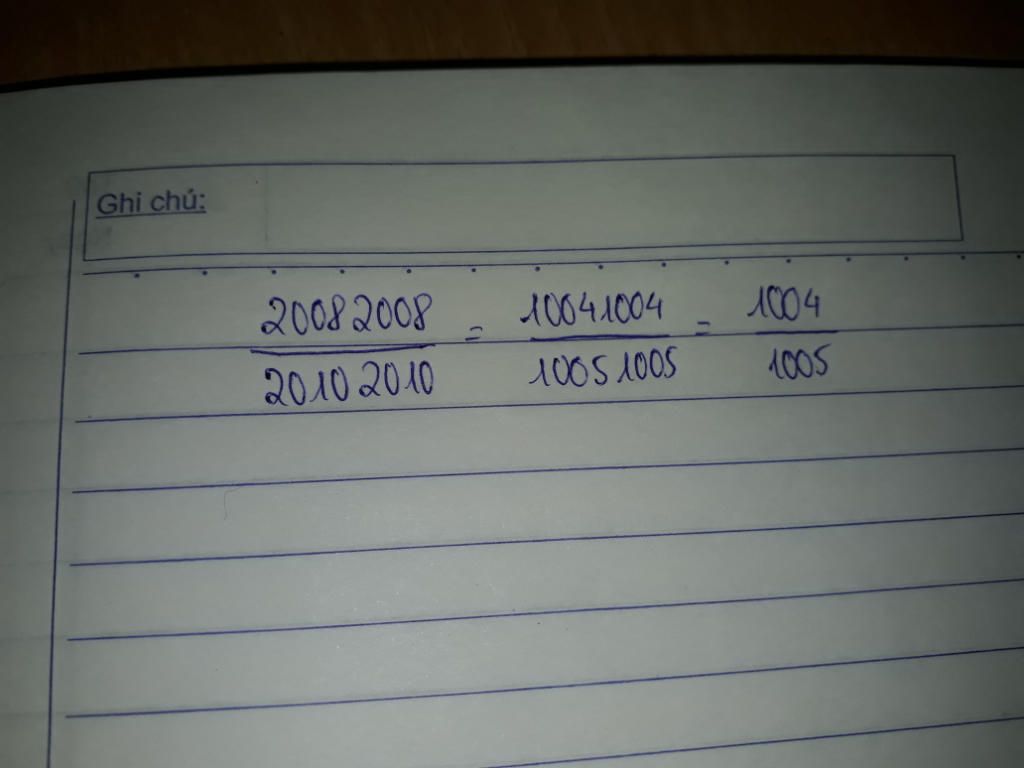 Ghi chú:
20082008 / 20102010 = 10041004 / 10051005 = 1004 / 1005